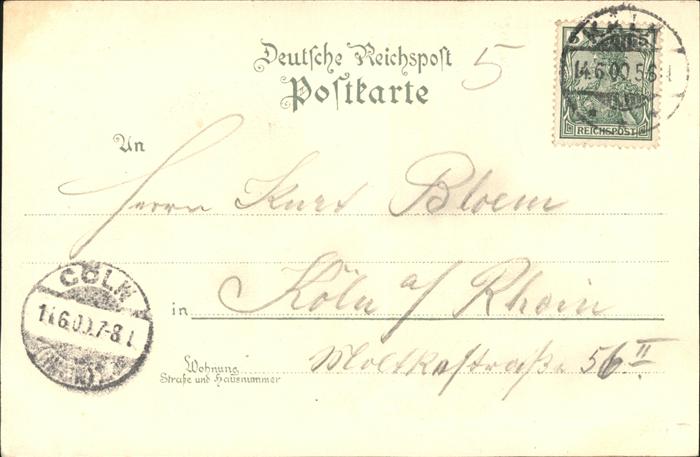 Deutsche Reichspost
Postkarte
5
14.6.00.5-6
REICHSPOST
An
Herrn Kurt Bloem
in Köln a/ Rhein
Wohnung
Straße und Hausnummer
Moltkestraße 56 II
CÖLN
14.6.00.7-8